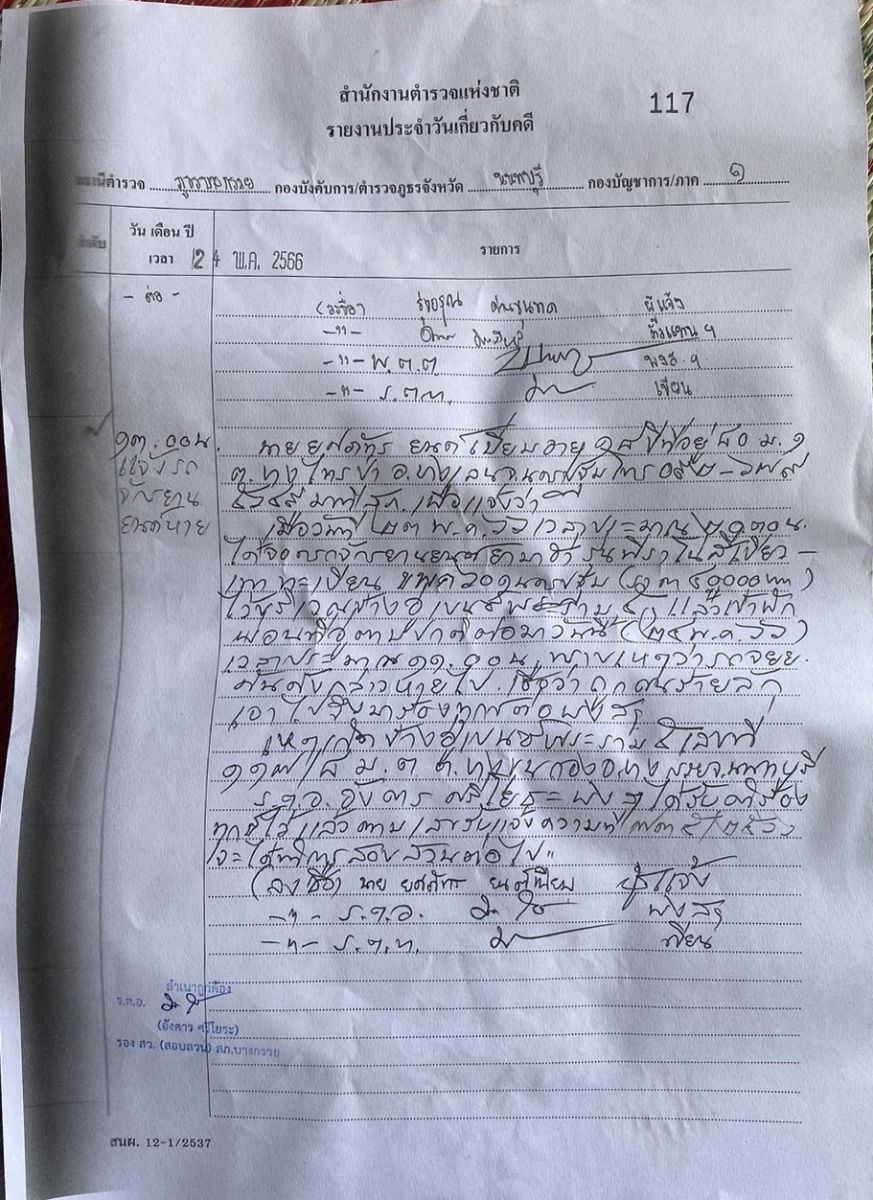 สำนักงานตำรวจแห่งชาติ
117
รายงานประจำวันเกี่ยวกับคดี
สถานีตำรวจ ภูธรบางกรวย กองบังคับการ/ตำรวจภูธรจังหวัด นนทบุรี กองบัญชาการ/ภาค ๑
ลำดับ
วัน เดือน ปี
เวลา 24 พ.ค. 2566
รายการ
- ต่อ -
(ลงชื่อ) รุ่งอรุณ ด่านขุนทด ผู้แจ้ง
-"-
-"- พ.ต.ต. พงส.ฯ
-"- ร.ต.ท. เขียน
๑๓.๐๐น.
แจ้งรถ
จักรยาน
ยนต์หาย
นาย ยศภัทร ยนต์เปี่ยม อายุ ๑๘ ปี ที่อยู่ ๕๐ ม.๑
ต.บางไทรป่า อ.บางเลน จ.นครปฐม โทร
มาที่ สภ. เพื่อแจ้งว่า
เมื่อวันที่ ๒๓ พ.ค.๖๖ เวลาประมาณ ๒๑.๓๐น.
ได้จอดรถจักรยานยนต์ยามาฮ่า รุ่นฟีร่าโน่ สีเขียว-
เทา ทะเบียน นครปฐม
ไว้บริเวณข้างอู่เบนซ์พระราม ๕ แล้วเข้าพัก
ผ่อนที่อู่ตามปกติ ต่อมาวันนี้ (๒๔ พ.ค.๖๖)
เวลาประมาณ ๑๑.๐๐น. พบเหตุว่ารถ จยย.
คันดังกล่าวหายไป เชื่อว่าถูกคนร้ายลัก
เอาไปจึงมาร้องทุกข์ต่อ พงส.ฯ
เหตุเกิด ข้างอู่เบนซ์พระราม ๕ เลขที่
๑๑๗/๘ ม.๓ ต.บางขุนกอง อ.บางกรวย จ.นนทบุรี
ร.ต.อ. อังคาร ศรีโยธะ พงส.ฯ ได้รับคำร้อง
ทุกข์ไว้แล้วตามเลขรับแจ้งความที่
จะได้ทำการสอบสวนต่อไป
(ลงชื่อ) นาย ยศภัทร ยนต์เปี่ยม ผู้แจ้ง
-"- ร.ต.อ. พงส.ฯ
-"- ร.ต.ท. เขียน
สำเนาถูกต้อง
ร.ต.อ.
(อังคาร ศรีโยธะ)
รอง สว. (สอบสวน) สภ.บางกรวย
สนผ. 12-1/2537